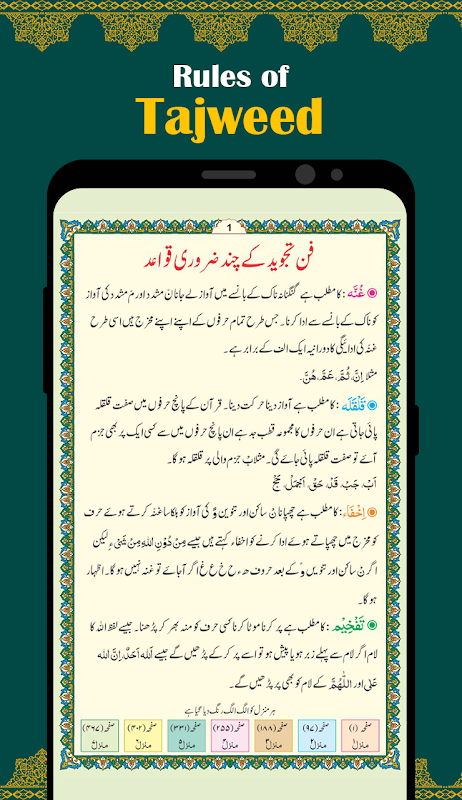 Rules of
Tajweed
1
فن تجوید کے چند ضروری قواعد
غُنَّہ : کا مطلب ہے گنگنانہ ناک کے بانسے میں آواز لے جانا نّ مشدد اور مّ مشدد کی آواز
کو ناک کے بانسے سے ادا کرنا۔ جس طرح تمام حرفوں کے اپنے اپنے مخرج ہیں اسی طرح
غنہ کی ادائیگی کا دورانیہ ایک الف کے برابر ہے۔
مثلا اِنَّ، ثُمَّ، عَمَّ، ھُنَّ۔
قَلْقَلَہ : کا مطلب ہے آواز دینا حرکت دینا۔ قرآن کے پانچ حرفوں میں صفت قلقلہ
پائی جاتی ہے ان حرفوں کا مجموعہ قطب جد ہے ان پانچ حرفوں میں سے کسی ایک پر بھی جزم
آئے تو صفت قلقلہ پائی جائے گی۔ مثلا بْ جزم والی پر قلقلہ ہو گا۔
اَبْ، جَبْ، قَدْ، حَقْ، اَجْمَلْ، حَجْ
اِخْفَاء : کا مطلب ہے چھپانا نْ ساکن اور تنوین کی آواز کو ہلکا سا غنہ کرتے ہوئے حرف
کو مخرج میں چھپاتے ہوئے ادا کرنے کو اخفاء کہتے ہیں جیسے مِنْ دُوْنِ اللهِ مِنْ شَیْءٍ لیکن
اگر نْ ساکن اور تنوین کے بعد حروف ھ ء ح خ ع غ اگر آجائے تو غنہ نہیں ہو گا۔ اظہار
ہو گا۔
تَفْخِیْم : کا مطلب ہے پر کرنا موٹا کرنا کسی حرف کو منہ بھر کر پڑھنا۔ جیسے لفظ اللہ کا
لام اگر لام سے پہلے زبر ہو یا پیش ہو تو اسے پر کر کے پڑھیں گے جیسے اَللّٰہُ اَحَدٌ، اِنَّ اللہَ
عَلٰی اور اَللّٰهُمَّ کے لام کو بھی پر پڑھیں گے۔
ہر منزل کو الگ الگ رنگ دیا گیا ہے
صفحہ (۱) صفحہ (۹۷) صفحہ (۱۸۸) صفحہ (۲۵۵) صفحہ (۳۳۱) صفحہ (۴۰۲) صفحہ (۴۶۷)
منزل منزل منزل منزل منزل منزل منزل